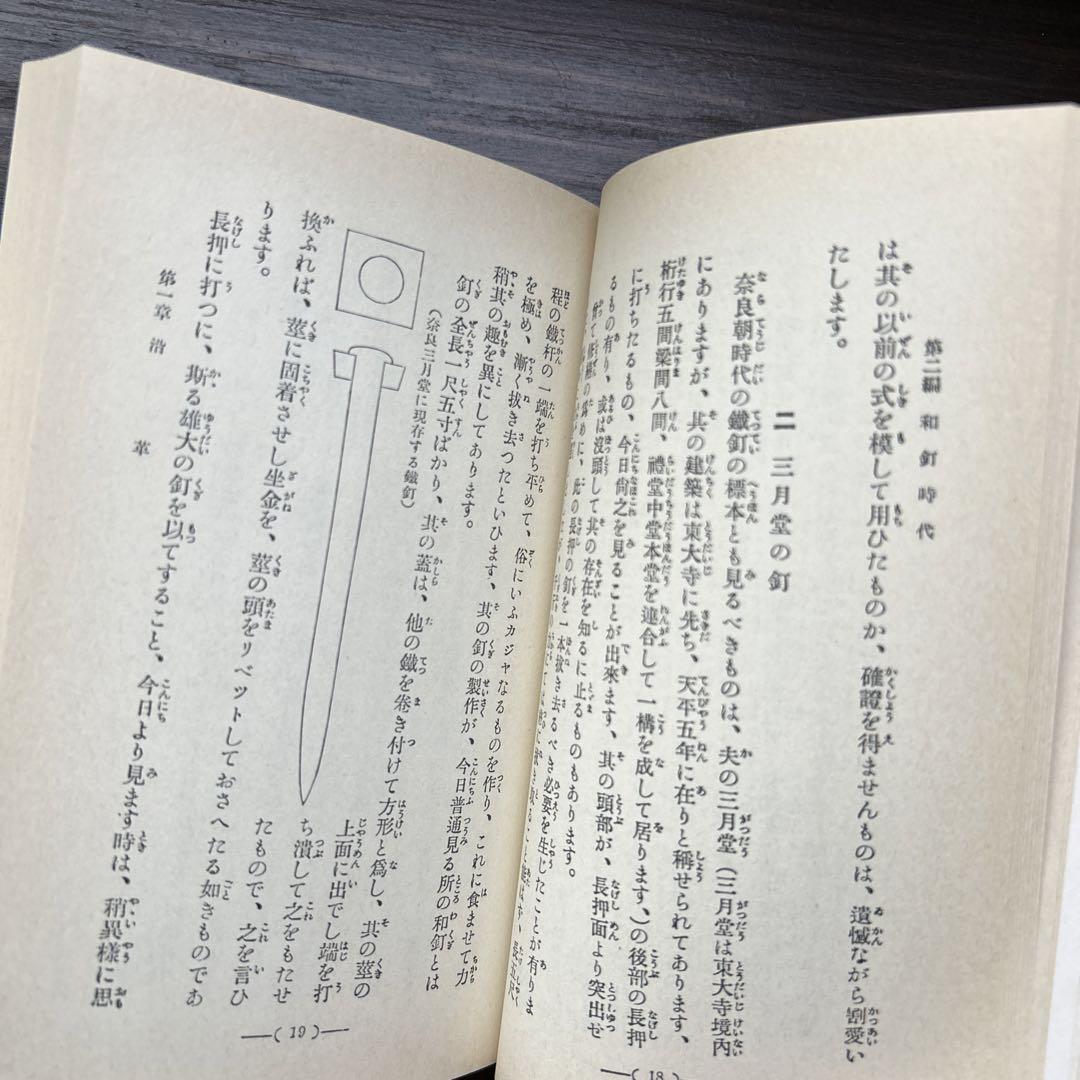 第二編 和釘時代
は其の以前の式を模して用ひたものか、確證を得ませんものは、遺憾ながら割愛い
たします。
二 三月堂の釘
奈良朝時代の鐵釘の標本とも見るべきものは、夫の三月堂(三月堂は東大寺境內
にありますが、其の建築は東大寺に先ち、天平五年に在りと稱せられてあります、
桁行五間梁間八間、禮堂中堂本堂を連合して一構を成して居ります、)の後部の長押
に打ちたるもの、今日尙之を見ることが出來ます、其の頭部が、長押面より突出せ
るもの有り、或は沒頭して其の存在を知るに止るものもあります。
甞て修繕の爲めに、此の長押の釘を一本拔き去るべき必要を生じたことが有りま
—(18)—
程の鐵杆の一端を打ち平めて、俗にいふカジヤなるものを作り、これに食ませて力
を極め、漸く拔き去つたといひます、其の釘の製作が、今日普通見る所の和釘とは
稍其の趣を異にしてあります。
釘の全長一尺五寸ばかり、其の蓋は、他の鐵を卷き付けて方形と爲し、其の莖の
(奈良三月堂に現存する鐵釘)
上面に出でし端を打
ち潰して之をもたせ
たもので、之を言ひ
換ふれば、莖に固着させし坐金を、莖の頭をリベットしておさへたる如きものであ
ります。
長押に打つに、斯る雄大の釘を以てすること、今日より見ます時は、稍異樣に思
第一章 沿革
—(19)—